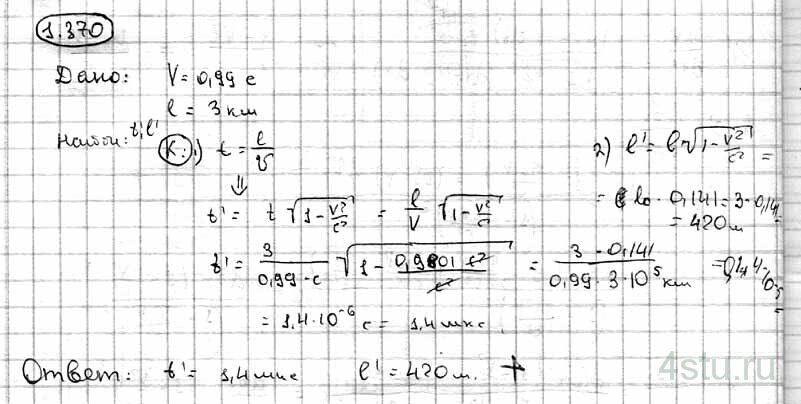 1.370
Дано: V = 0,99 c
l = 3 км
Найти: t', l'
K: 1) t = l/v
⇓
t' = t √(1 - v²/c²) = l/V √(1 - v²/c²)
t' = 3/(0,99·c) √(1 - 0,9801 c²/c²) = 3·0,141/(0,99·3·10⁵ км)
= 1,4·10⁻⁶ c = 1,4 мкс.
2) l' = l √(1 - v²/c²) =
= l₀ · 0,141 = 3·0,141 =
= 420 м
Ответ: t' = 1,4 мкс l' = 420 м. +
4stu.ru